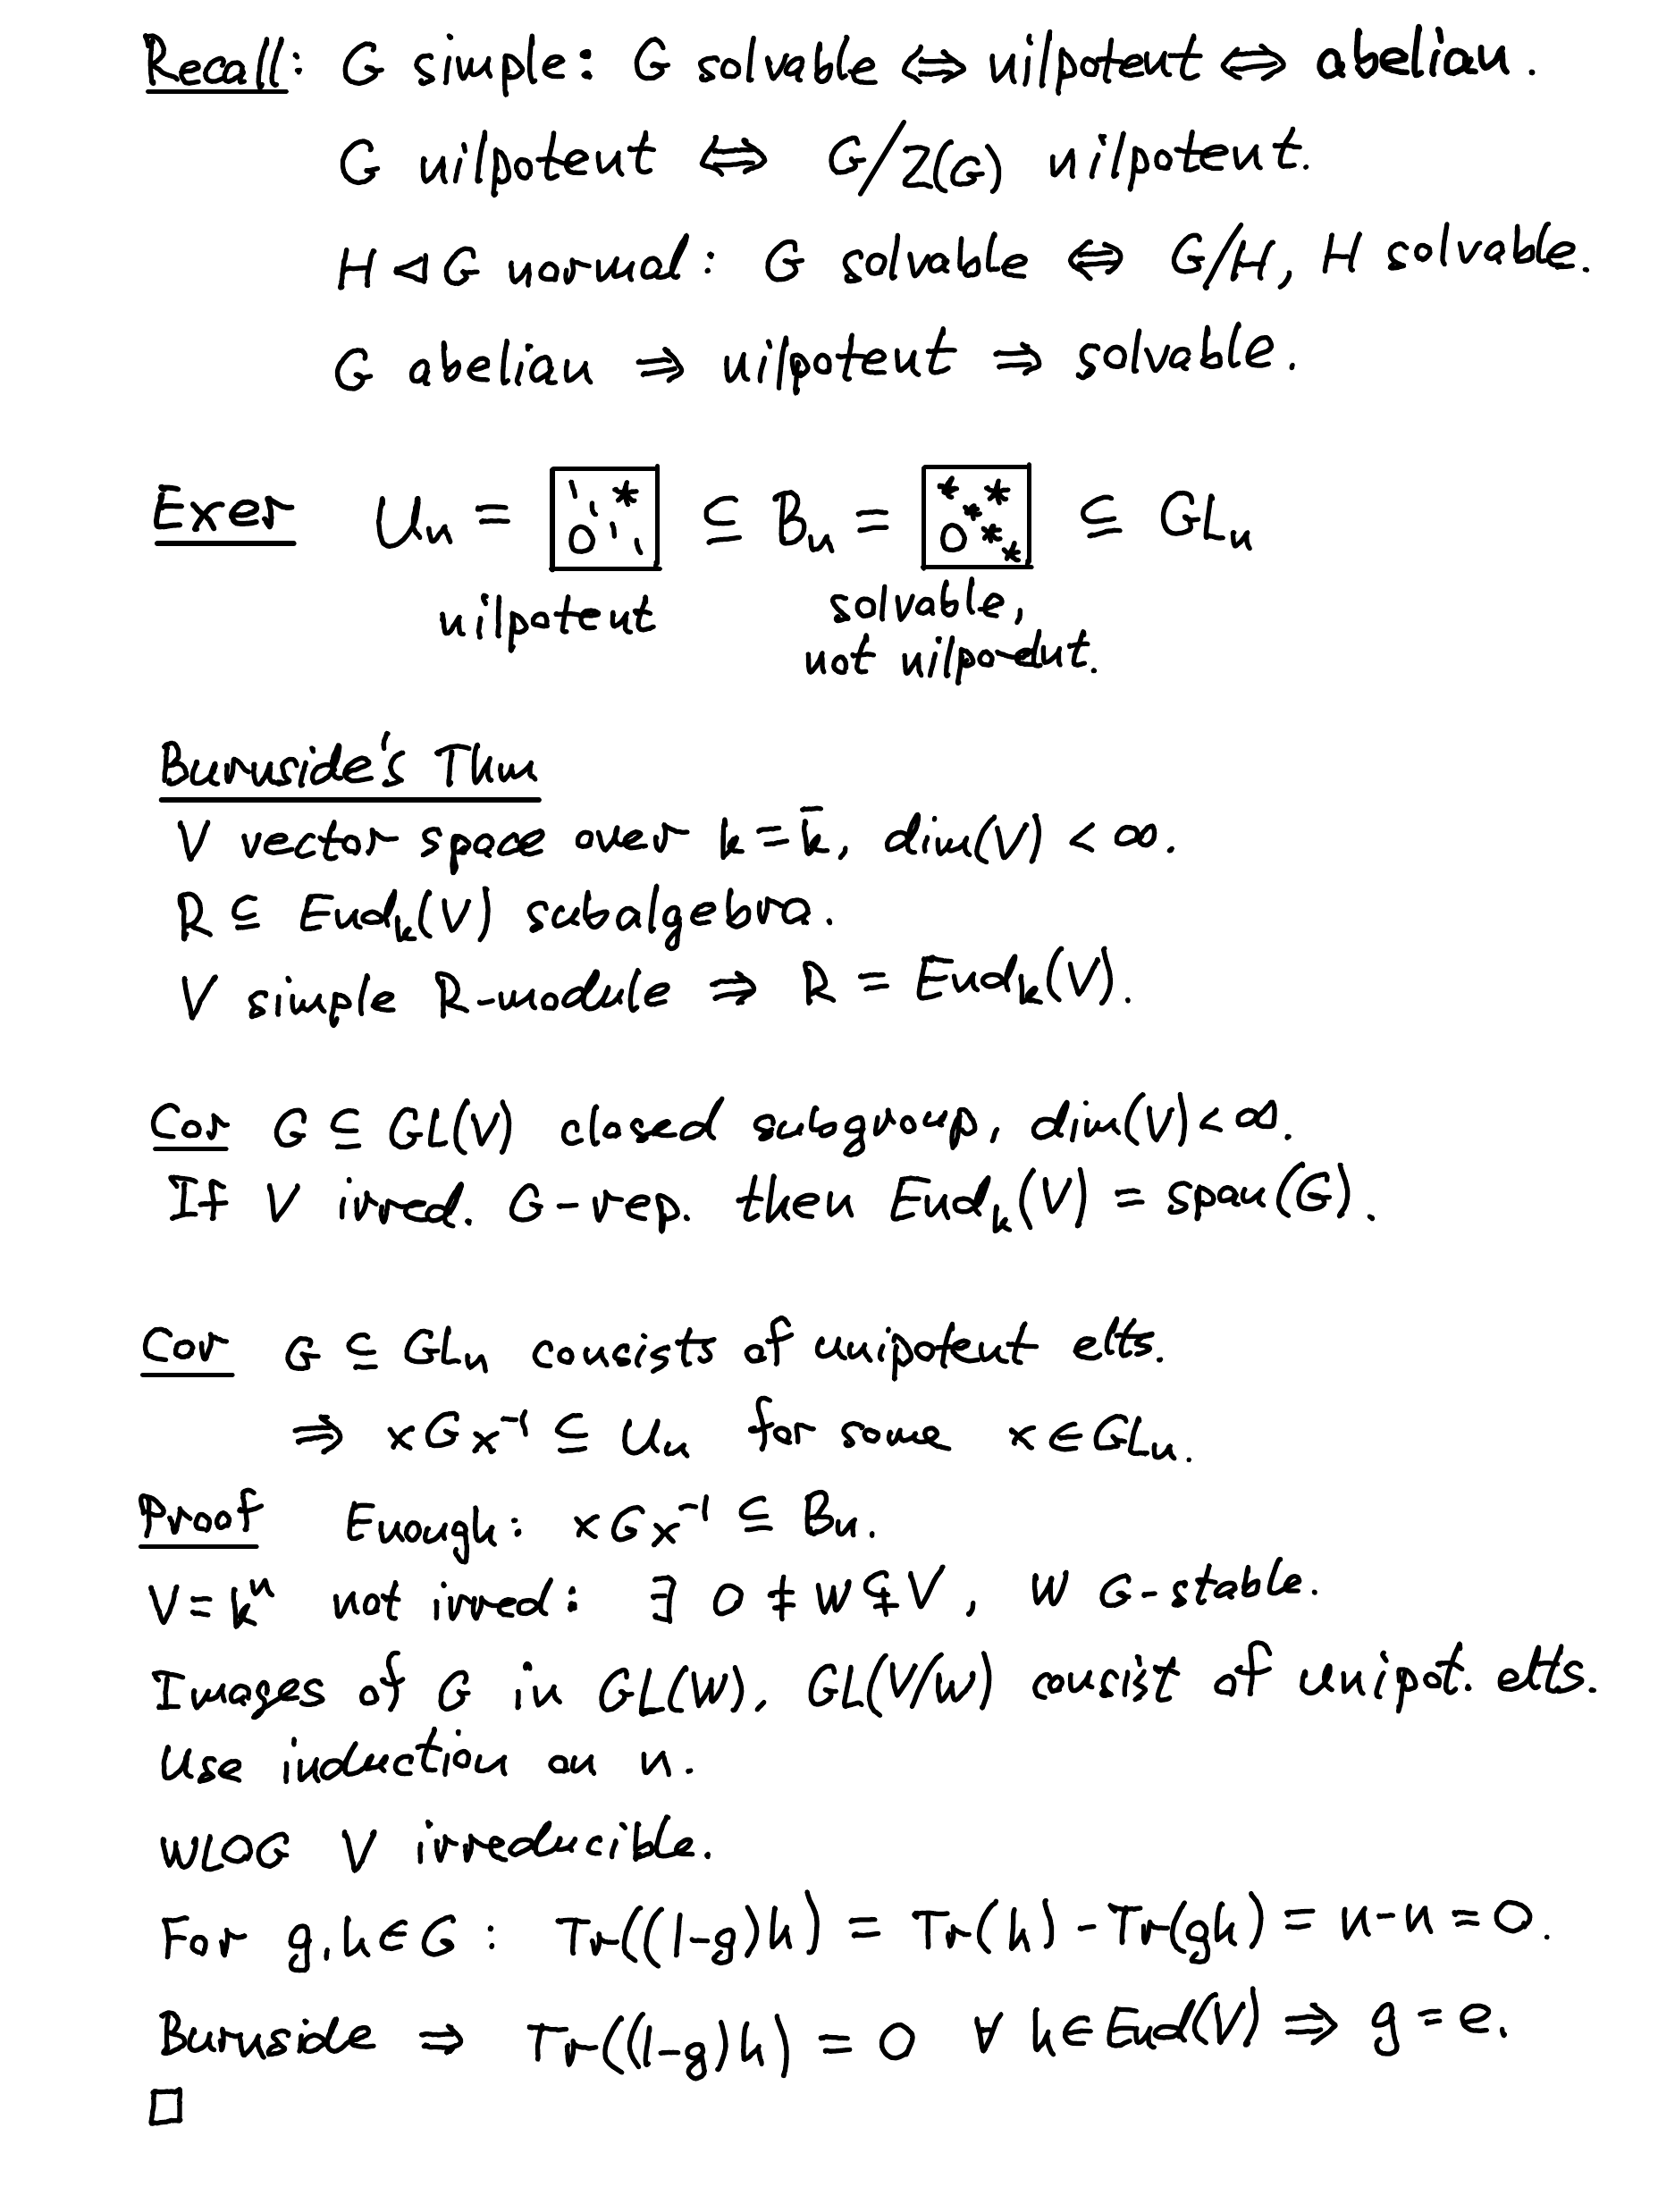 Recall: G simple: G solvable ⇔ nilpotent ⇔ abelian.
G nilpotent ⇔ G/Z(G) nilpotent.
H ⊲ G normal: G solvable ⇔ G/H, H solvable.
G abelian ⇒ nilpotent ⇒ solvable.
Exer Uₙ = [1 * 0 1] ⊆ Bₙ = [* * 0 *] ⊆ GLₙ
nilpotent solvable,
not nilpotent.
Burnside's Thm
V vector space over k = k̄, dim(V) < ∞.
R ⊆ Endₖ(V) subalgebra.
V simple R-module ⇒ R = Endₖ(V).
Cor G ⊆ GL(V) closed subgroup, dim(V) < ∞.
If V irred. G-rep. then Endₖ(V) = span(G).
Cor G ⊆ GLₙ consists of unipotent elts.
⇒ xGx⁻¹ ⊆ Uₙ for some x ∈ GLₙ.
Proof Enough: xGx⁻¹ ⊆ Bₙ.
V = kⁿ not irred: ∃ 0 ≠ W ⊊ V, W G-stable.
Images of G in GL(W), GL(V/W) consist of unipot. elts.
Use induction on n.
WLOG V irreducible.
For g, h ∈ G: Tr((1-g)h) = Tr(h) - Tr(gh) = n-n = 0.
Burnside ⇒ Tr((1-g)h) = 0 ∀ h ∈ End(V) ⇒ g = e.
□